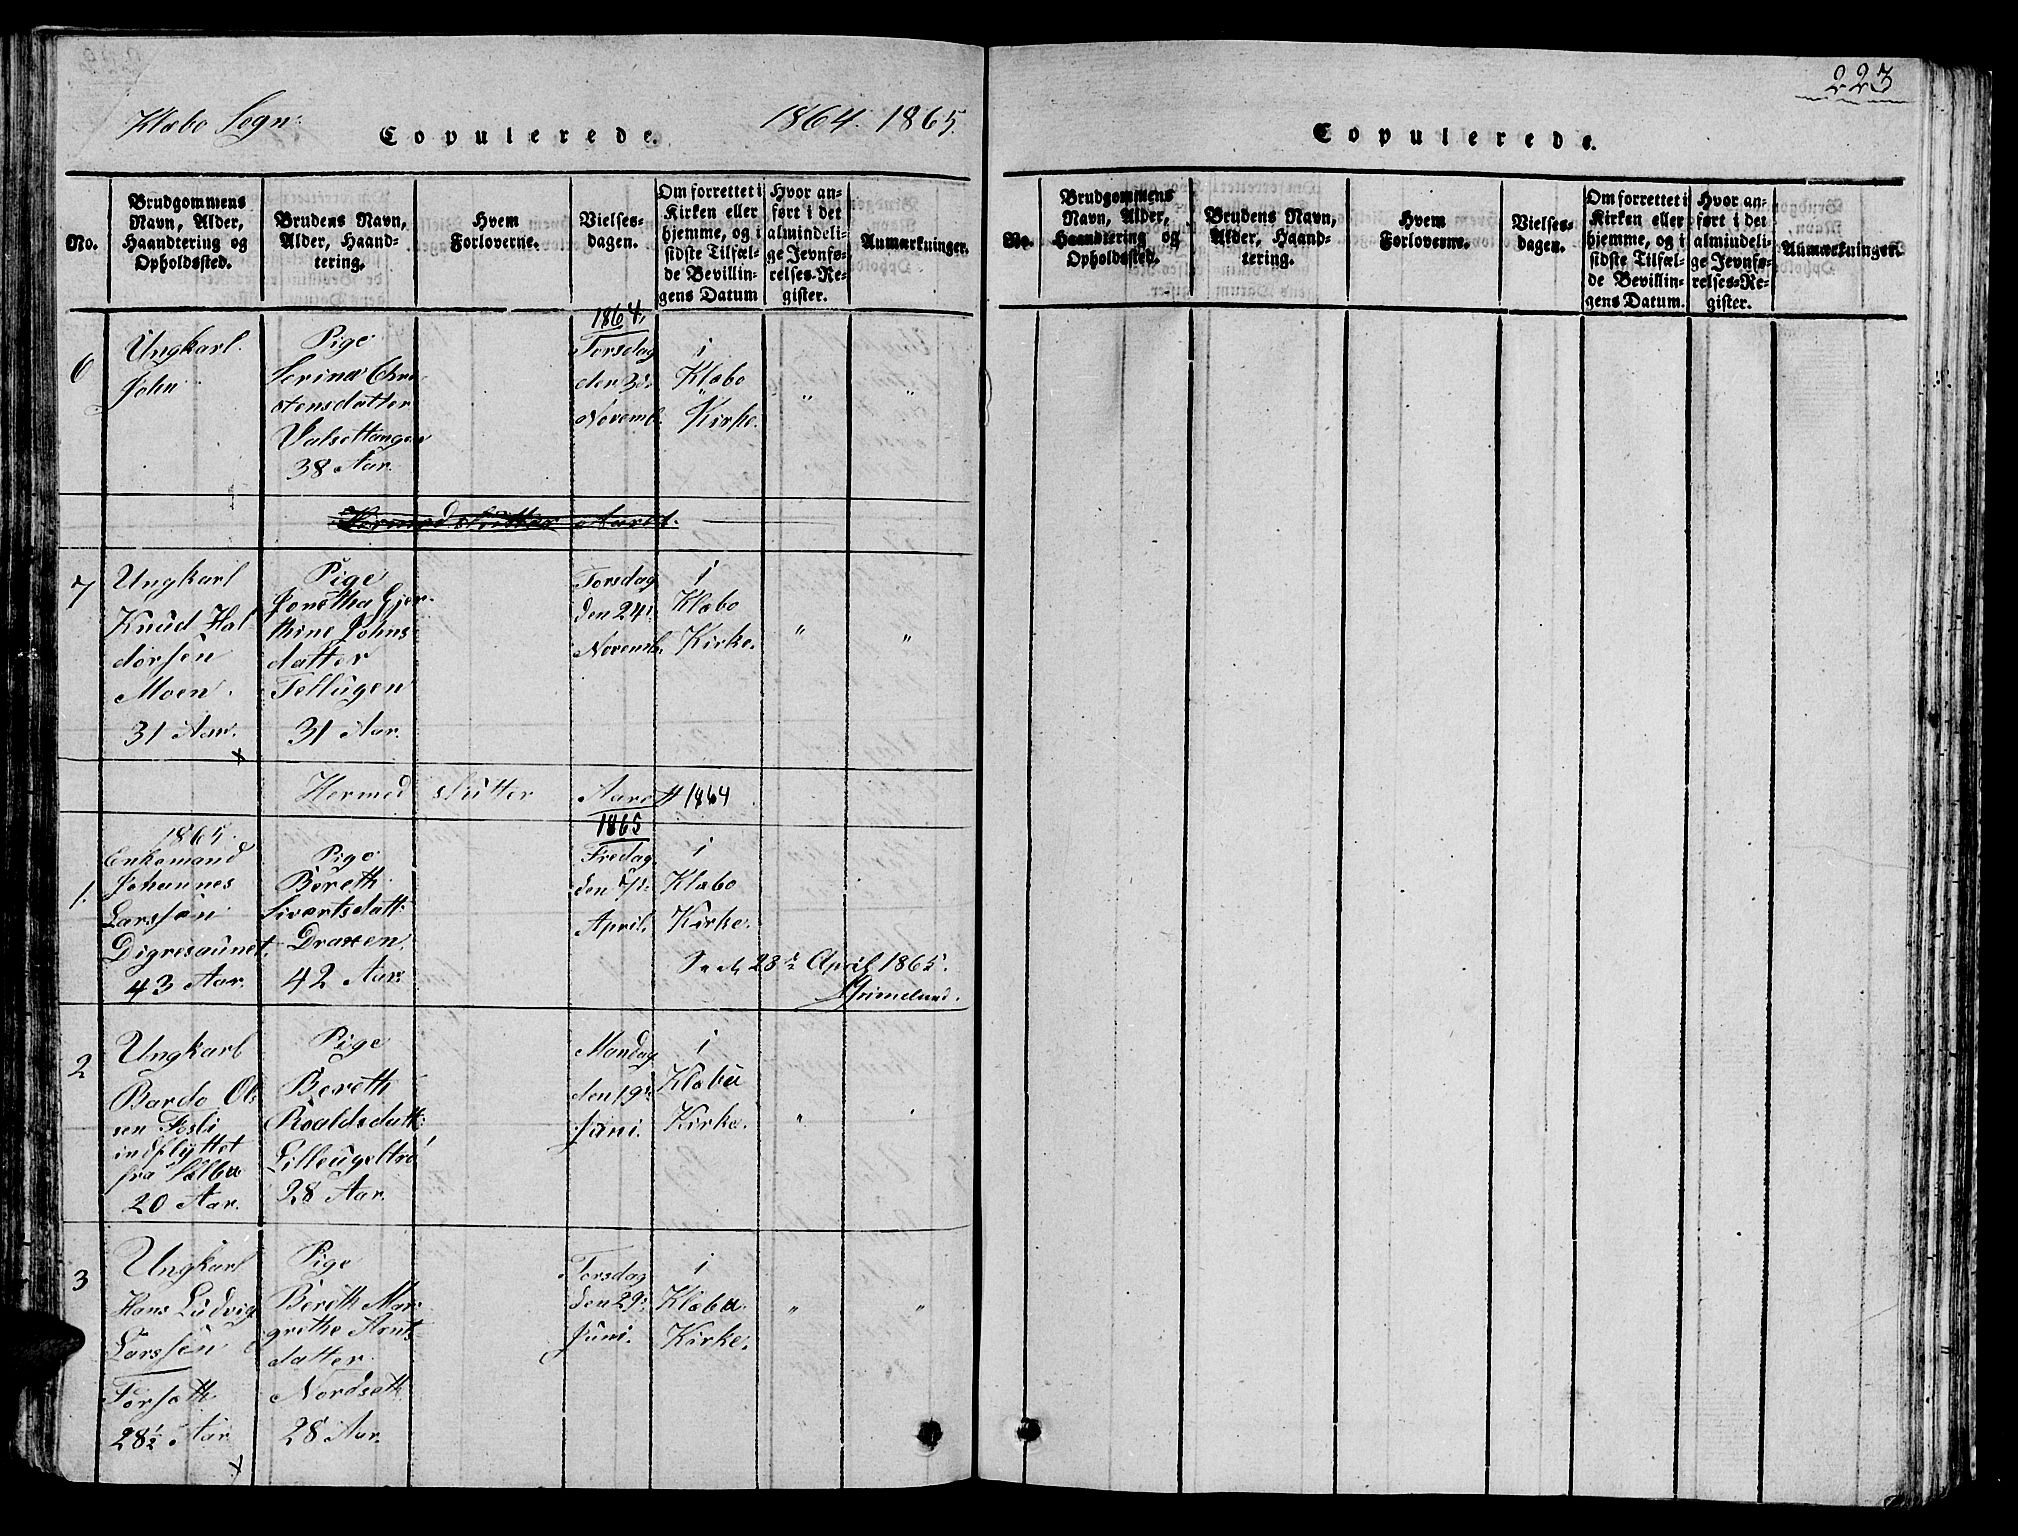 Klæbo Sogn:
Copulerede.
1864. 1865.
No.
Brudgommens Navn, Alder, Haandtering og Opholdssted.
Brudens Navn, Alder, Haandtering.
Hvem Forloverne.
Vielsesdagen.
Om forrettet i Kirken eller hjemme, og i sidste Tilfælde Bevillingens Datum
Hvor anført i det almindelige Jevnførelses-Register.
Anmærkninger.
6
Ungkarl
John
Pige
Serinæ Chri
stensdatter
Valsettangen
38 Aar.
1864.
Torsdag
den 3die
Novemb.
i
Klæbo
Kirke.
"
"
Hermed slutter Aaret.
7
Ungkarl
Knud Hal
dorsen
Moen.
31 Aar.
Pige
Jonetha Gjer-
thine Johns
datter
Tellugen
31 Aar.
Torsdag
den 24de
Novemb.
i
Klæbo
Kirke.
"
"
Hermed slutter Aaret 1864
1.
1865.
Enkemand
Johannes
Larssen
Digresaunet.
43 Aar.
Pige
Bereth
Sivertsdatt:
Draxen.
42 Aar.
1865
Fredag
den 7de
April.
i
Klæbo
Kirke.
Seet, 28de April 1865.
Grimelund.
2
Ungkarl
Bardo Ol
sen Fosli
indflyttet
fra Sælbu
20 Aar.
Pige
Bereth
Roaldsdatt:
Lilleugeltrö
28 Aar.
Mandag
den 19de
Juni.
i
Klæbu
Kirke.
"
3
Ungkarl
Hans Ludvig
Larssen
Forsæth
28½ Aar
Pige
Bereth Mar
grethe Arnts
datter
Nordseth
28 Aar.
Torsdag
den 29de
Juni.
i
Klæbu
Kirke.
"
"
223
Copulerede.
No.
Brudgommens Navn, Alder, Haandtering og Opholdssted.
Brudens Navn, Alder, Haandtering.
Hvem Forloverne.
Vielsesdagen.
Om forrettet i Kirken eller hjemme, og i sidste Tilfælde Bevillingens Datum.
Hvor anført i det almindelige Jevnførelses-Register.
Anmærkninger.